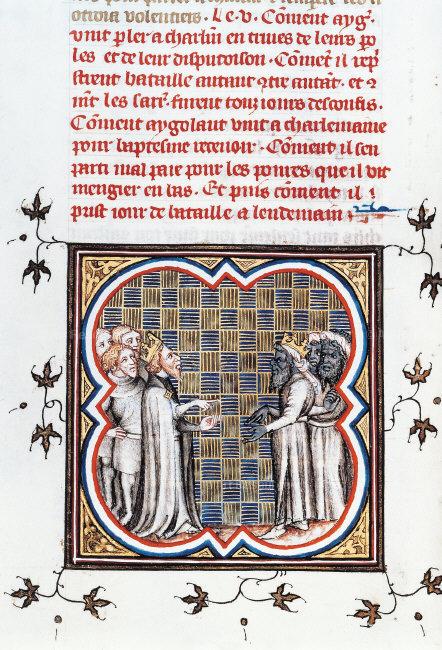 otroia volentiers. Le. v. Coment aygꝰ.
vint pler a charlm̄ en trives de leurs ꝑo
les et de leur disputoison. Coment il repͥ
strent bataille autant ꝯtre autant. et ꝯ
mt les sarꝛ. furent touz iours desconfis.
Coment aygolant vint a charlemaine
pour baptesme recevoir. Coment il sen
parti mal paie pour les poures que il vit
mengier en bas. Et puis coment il
prist iour de bataille a lendemain